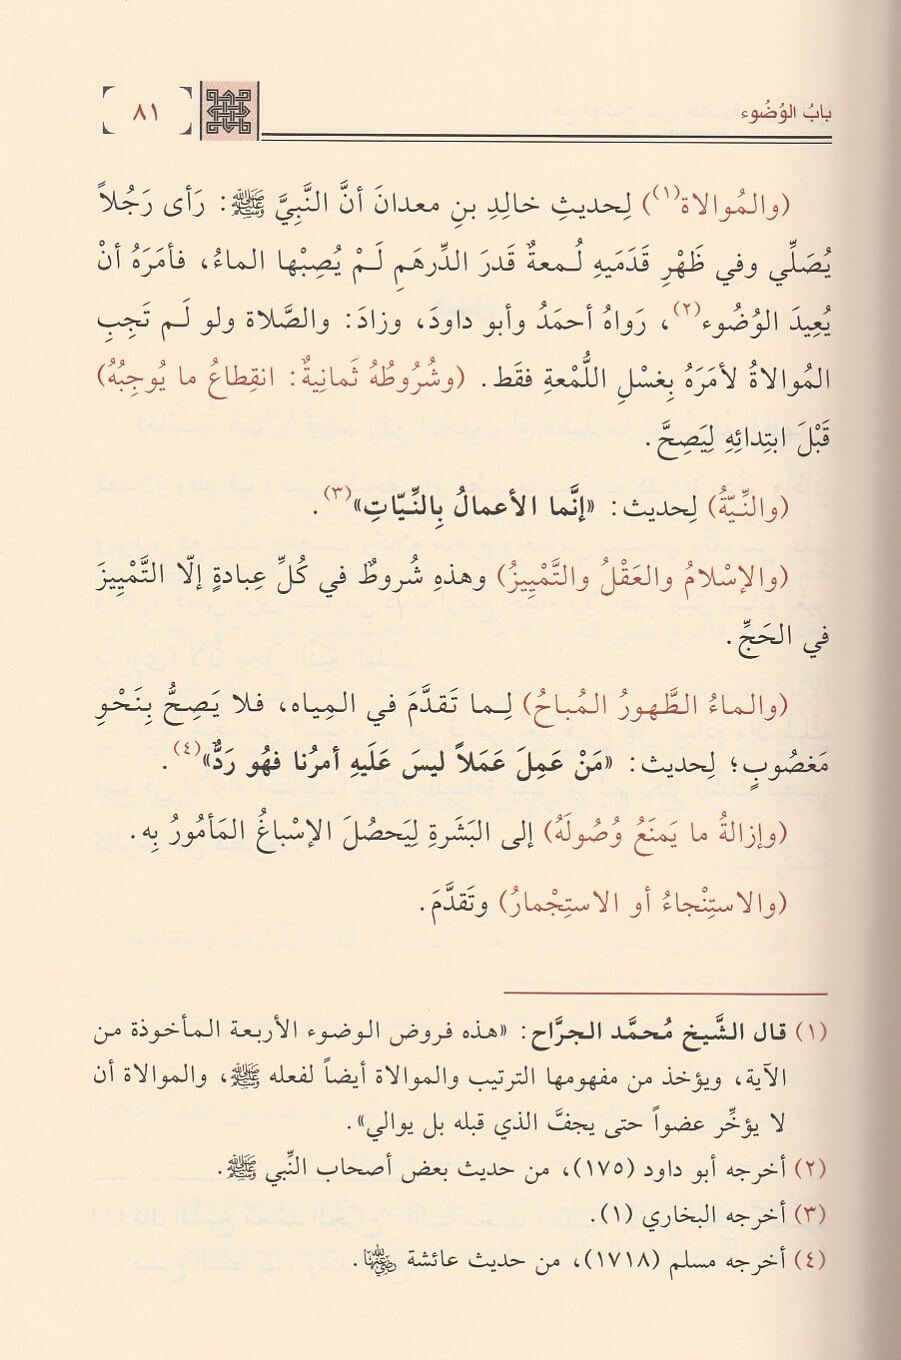 بابُ الوُضُوء
٨١
(والمُوالاة(١)) لِحديثِ خالِدِ بنِ معدانَ أنَّ النَّبِيَّ ﷺ: رَأى رَجُلاً
يُصَلِّي وفي ظَهْرِ قَدَمَيهِ لُـمعةٌ قَدرَ الدِّرهَمِ لَـمْ يُصِبْها الماءُ، فأمَرَهُ أنْ
يُعِيدَ الوُضُوء(٢)، رَواهُ أحمَدُ وأبو داودَ، وزادَ: والصَّلاة ولو لَـم تَجِبِ
المُوالاةُ لأمَرَهُ بِغَسْلِ اللُّمْعةِ فقَط. (وشُرُوطُهُ ثَمانِيةٌ: انقِطاعُ ما يُوجِبُهُ)
قَبْلَ ابتِدائِهِ لِيَصِحَّ.
(والنِّـيّةُ) لِحديث: «إنَّما الأعمالُ بِالنِّـيّاتِ»(٣).
(والإسْلامُ والعَقْلُ والتَّمْيِيزُ) وهذهِ شُروطٌ في كُلِّ عِبادةٍ إلّا التَّمْيِيزَ
في الحَجِّ.
(والـماءُ الطَّهورُ المُباحُ) لِـما تَقدَّمَ في المِياه، فلا يَصِحُّ بِنَحْوِ
مَغصُوبٍ؛ لِحديث: «مَنْ عَمِلَ عَمَلاً ليسَ عَلَيهِ أمرُنا فهُو رَدٌّ»(٤).
(وإزالةُ ما يَمنَعُ وُصُولَهُ) إلى البَشَرةِ لِيَحصُلَ الإسْباغُ المَأمُورُ بِه.
(والاستِنْجاءُ أو الاستِجْمارُ) وتَقدَّمَ.
(١) قال الشَّيخ مُحمَّد الجرَّاح: «هذه فروض الوضوء الأربعة المـأخوذة من
الآية، ويؤخذ من مفهومها الترتيب والموالاة أيضاً لفعله ﷺ، والموالاة أن
لا يؤخِّر عضواً حتى يجفَّ الذي قبله بل يوالي».
(٢) أخرجه أبو داود (١٧٥)، من حديث بعض أصحاب النِّبي ﷺ.
(٣) أخرجه البخاري (١).
(٤) أخرجه مسلم (١٧١٨)، من حديث عائشة رضي الله عنها.